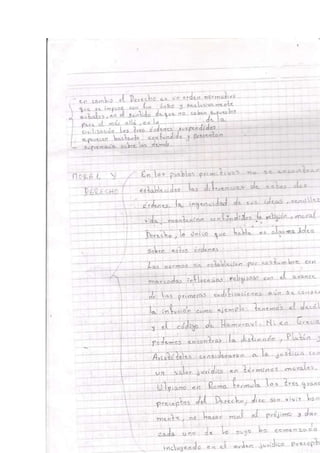 en cambio el Derecho es un orden normativo
que se impone con fin único y exclusivamente
sobales, en el sentido de que no caben
para el más allá, en la de la
civilización los tres órdenes
aparecen bastante confundidos y
supremacía sobre los demás.
MORAL Y En los pueblos primitivos no se encontraban
DERECHO establecidos las diferencias de estos dos
órdenes, la ingenuidad de sus ideas, sencillez
vida, mantenían confundidos la religión, moral
Derecho, lo único que había es alguna idea
sobre estos órdenes.
Las normas se establecían por costumbre con
marcadas influencias religiosas con el avance
de las primeras codificaciones aún se conser
la intuición como ejemplo tenemos el decál
y el código de Hamuravi. Ni en Grecia
podemos encontrar la distinción, Platón y
Aristóteles consideraron a la justicia con
un valor jurídico en términos morales.
Ulpiano en Roma formula los tres grand
preceptos del Derecho, dice son vivir hon
mente, no hacer mal al prójimo y dar
cada uno de lo suyo ha comenzado
incluyendo en el orden jurídico precept